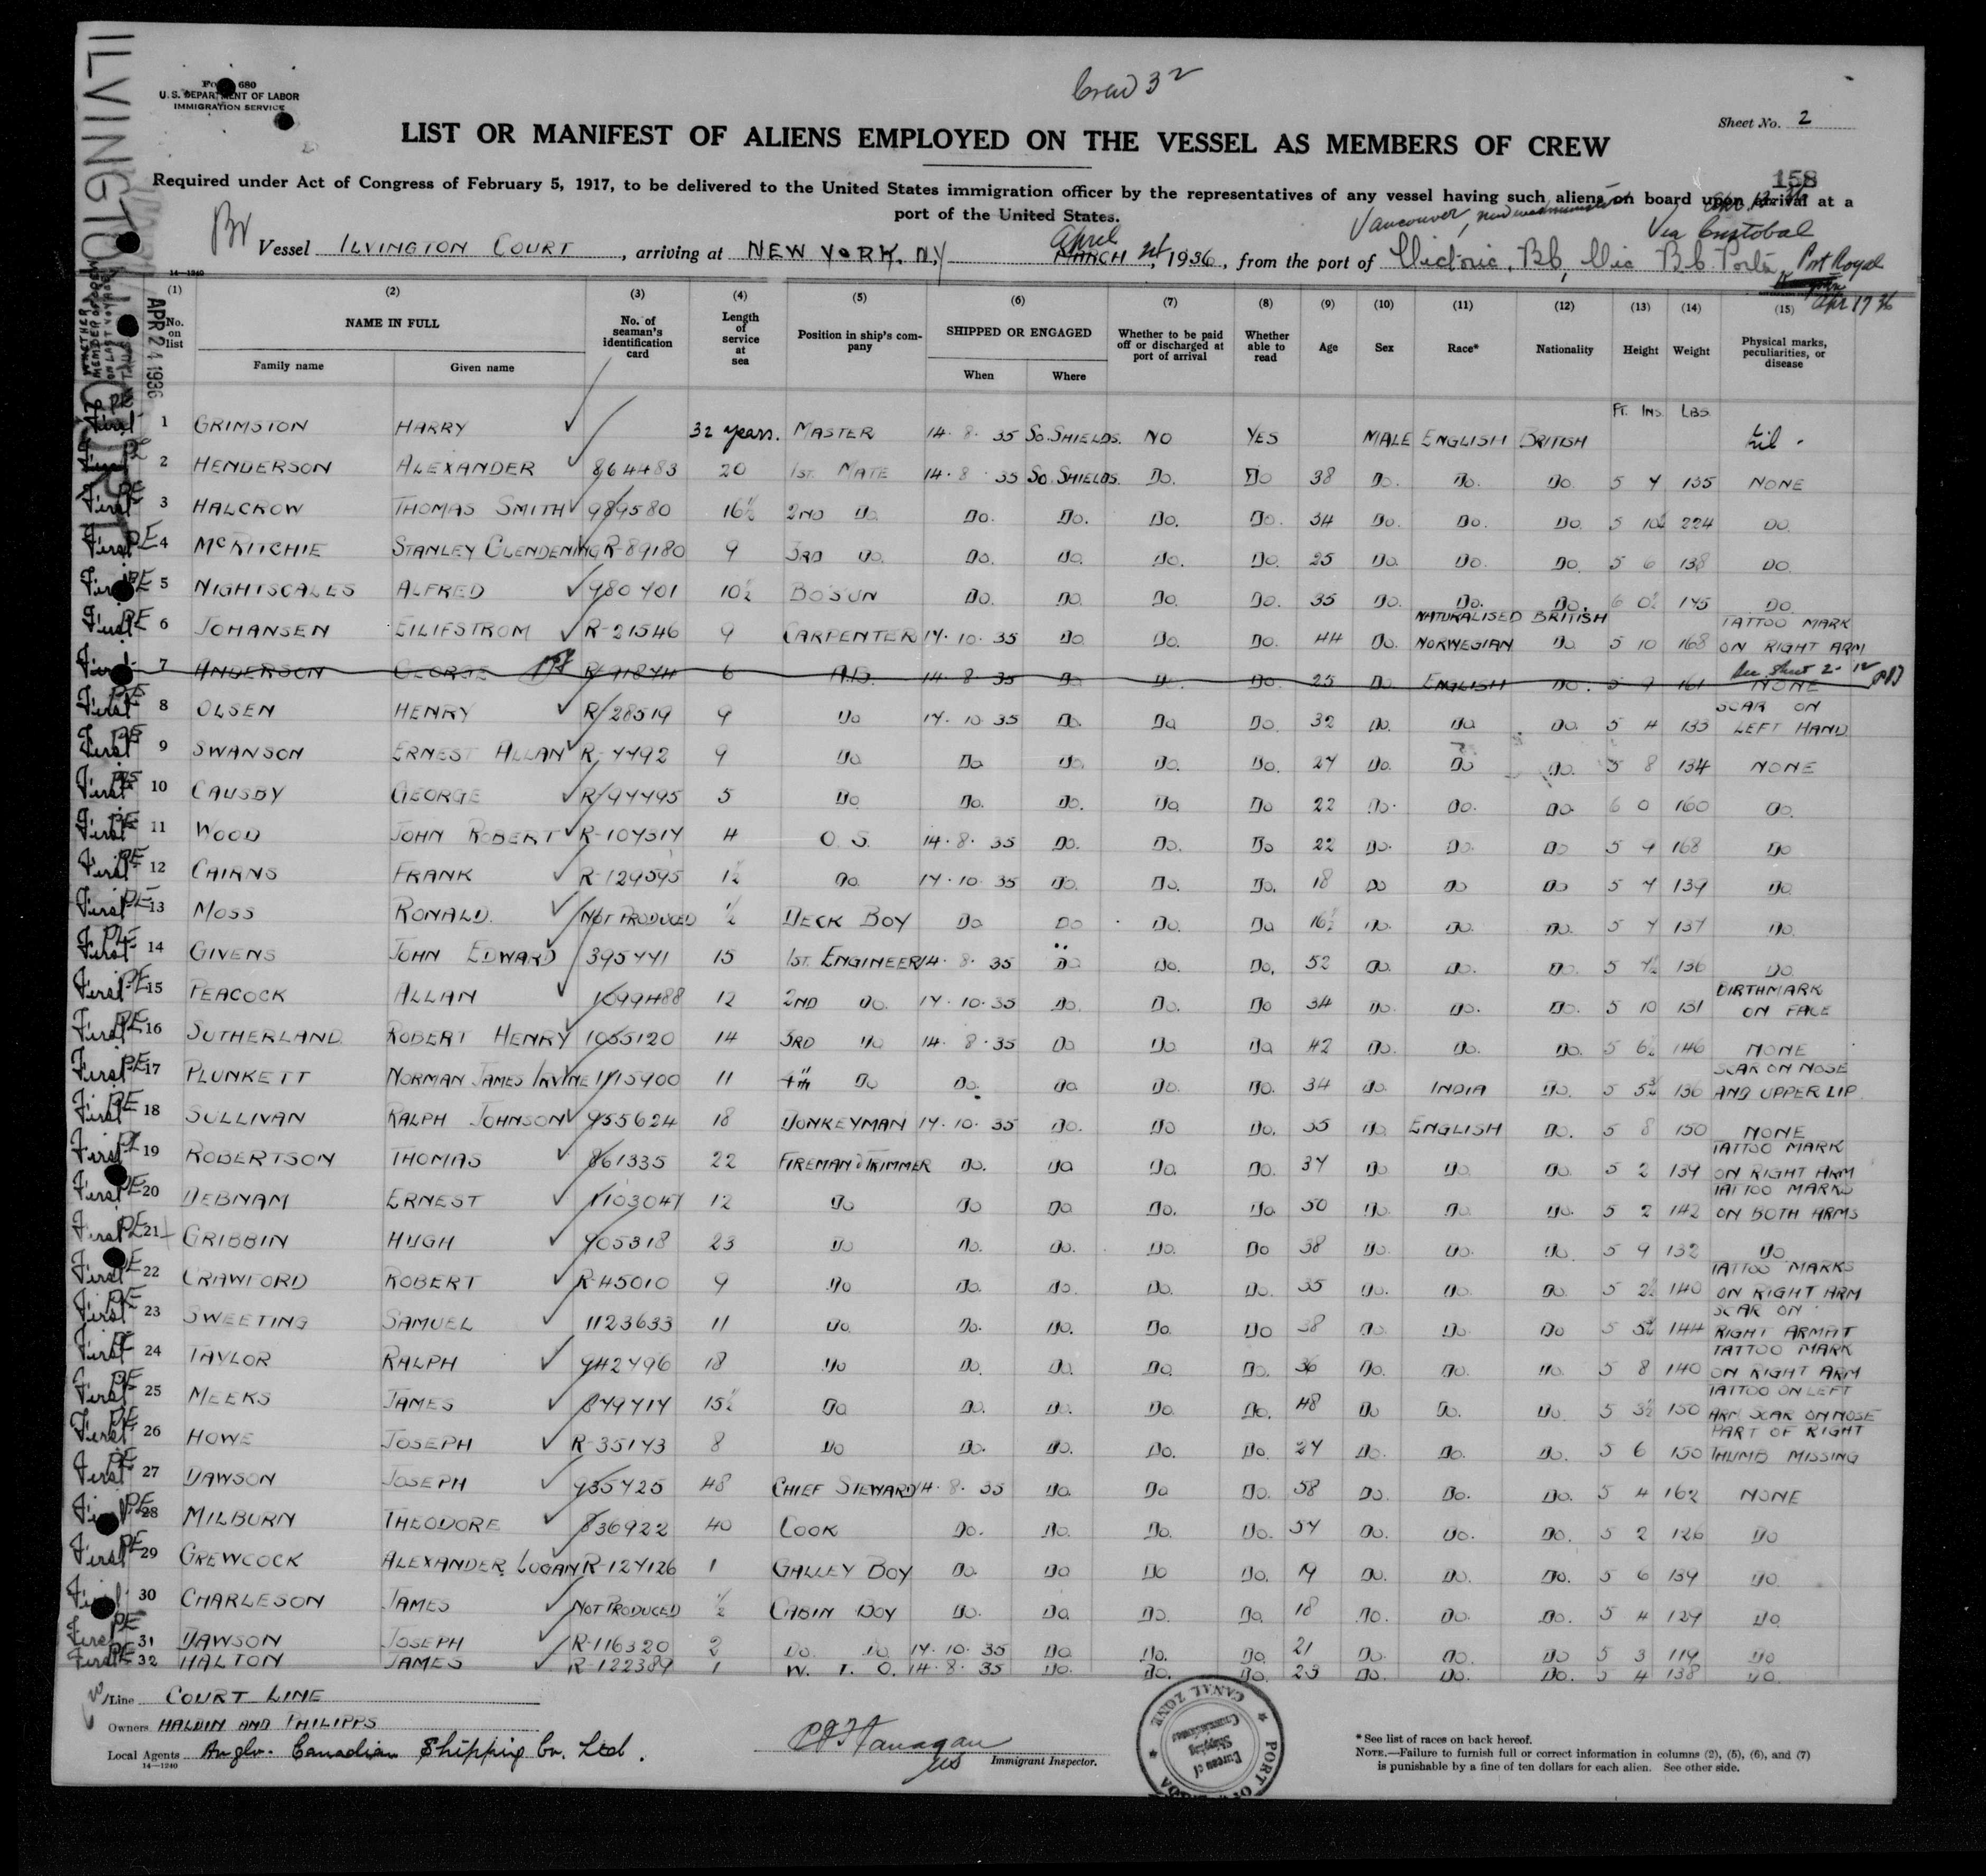 ILVINGTON COURT
Form 680
U.S. DEPARTMENT OF LABOR
IMMIGRATION SERVICE
Crew 32
Sheet No. 2
LIST OR MANIFEST OF ALIENS EMPLOYED ON THE VESSEL AS MEMBERS OF CREW
158
Required under Act of Congress of February 5, 1917, to be delivered to the United States immigration officer by the representatives of any vessel having such aliens on board upon arrival at a
port of the United States.
Br Vancouver, Via Cristobal
April
Vessel ILVINGTON COURT, arriving at NEW YORK. N.Y MARCH, 1936, from the port of Victoria, B.C. Via B.C. Ports, Port Royal
Apr 17 36
14—1240
APR 24 1936
(1) (2) (3) (4) (5) (6) (7) (8) (9) (10) (11) (12) (13) (14) (15)
No. on list NAME IN FULL No. of seaman's identification card Length of service at sea Position in ship's company SHIPPED OR ENGAGED Whether to be paid off or discharged at port of arrival Whether able to read Age Sex Race* Nationality Height Weight Physical marks, peculiarities, or disease
Family name Given name When Where
FT. INS. LBS.
First 1 GRIMSTON HARRY 32 years. MASTER 14. 8. 35 SO. SHIELDS. NO YES MALE ENGLISH BRITISH Nil.
First 2 HENDERSON ALEXANDER 864483 20 1ST. MATE 14. 8. 35 SO. SHIELDS. DO. DO 38 DO. DO. DO. 5 7 135 NONE
First PE 3 HALCROW THOMAS SMITH 989580 16½ 2ND DO DO. DO. DO. DO. 34 DO. DO. DO. 5 10½ 224 DO.
First PE 4 McRITCHIE STANLEY CLENDENING R-89180 9 3RD DO. DO. DO. DO. DO. 25 DO. DO. DO. 5 6 138 DO.
First PE 5 NIGHTSCALES ALFRED 980701 10½ BOSUN DO. DO. DO. DO. 35 DO. DO. DO. 6 0½ 175 DO.
First PE 6 JOHANSEN EILIFSTROM R-21546 9 CARPENTER 17. 10. 35 DO DO. DO. 44 DO. NATURALISED BRITISH NORWEGIAN DO 5 10 168 TATTOO MARK ON RIGHT ARM
First 7 ANDERSON GEORGE R-91874 6 A.B. 14. 8. 35 DO DO. DO. 25 DO ENGLISH DO. 5 9 161 NONE See Sheet 2-12
First PE 8 OLSEN HENRY R/28519 9 DO 17. 10. 35 DO. DO DO. 32 DO. DO DO. 5 4 133 SCAR ON LEFT HAND
First PE 9 SWANSON ERNEST ALLAN R-7492 9 DO DO DO. DO. DO. 27 DO. DO DO. 5 8 134 NONE
First 10 CAUSBY GEORGE R/94495 5 DO DO. DO. DO DO 22 DO. DO. DO. 6 0 160 DO.
First PE 11 WOOD JOHN ROBERT R-107317 4 O. S. 14. 8. 35 DO. DO. DO 22 DO. DO. DO 5 9 168 DO
First PE 12 CAIRNS FRANK R-129595 1½ DO. 17. 10. 35 DO. DO. DO. 18 DO DO DO 5 7 139 DO.
First PE 13 MOSS RONALD. NOT PRODUCED ½ DECK BOY DO. DO DO. DO 16½ DO. DO. DO. 5 7 137 DO.
First PE 14 GIVENS JOHN EDWARD 395771 15 1ST. ENGINEER 14. 8. 35 DO DO. DO. 52 DO. DO. DO. 5 7½ 136 DO.
First PE 15 PEACOCK ALLAN 1099488 12 2ND DO. 17. 10. 35 DO. DO. DO 34 DO. DO. DO. 5 10 131 BIRTHMARK ON FACE
First PE 16 SUTHERLAND ROBERT HENRY 1055120 14 3RD DO 14. 8. 35 DO DO DO 42 DO. DO. DO. 5 6½ 146 NONE
First PE 17 PLUNKETT NORMAN JAMES IRVINE 1115900 11 4TH DO DO. DO DO. DO. 34 DO INDIA DO. 5 5½ 136 SCAR ON NOSE AND UPPER LIP.
First PE 18 SULLIVAN RALPH JOHNSON 955624 18 DONKEYMAN 17. 10. 35 DO. DO DO. 35 DO ENGLISH DO. 5 8 150 NONE
First PE 19 ROBERTSON THOMAS 861335 22 FIREMAN & TRIMMER DO. DO DO DO. 37 DO DO. DO. 5 2 139 TATTOO MARK ON RIGHT ARM
First PE 20 DEBNAM ERNEST 1103047 12 DO DO DO DO. DO. 50 DO. DO DO. 5 2 142 TATTOO MARKS ON BOTH ARMS
First PE 21 GRIBBIN HUGH 905318 23 DO DO. DO. DO. DO 38 DO. DO. DO. 5 9 132 DO
First PE 22 CRAWFORD ROBERT R-45010 9 DO DO. DO. DO. DO. 35 DO. DO. DO. 5 2½ 140 TATTOO MARKS ON RIGHT ARM
First PE 23 SWEETING SAMUEL 1123633 11 DO DO. DO. DO. DO 38 DO. DO. DO 5 5½ 144 SCAR ON RIGHT ARMPIT
First PE 24 TAYLOR RALPH 942796 18 DO DO. DO. DO. DO. 36 DO. DO. DO. 5 8 140 TATTOO MARK ON RIGHT ARM
First PE 25 MEEKS JAMES 879717 15½ DO DO. DO. DO. DO. 48 DO DO. DO. 5 3½ 150 TATTOO ON LEFT ARM SCAR ON NOSE
First PE 26 HOWE JOSEPH R-35173 8 DO DO. DO. DO. DO. 27 DO. DO. DO. 5 6 150 PART OF RIGHT THUMB MISSING
First PE 27 DAWSON JOSEPH 935725 48 CHIEF STEWARD 14. 8. 35 DO. DO DO. 58 DO. DO. DO. 5 4 162 NONE
First PE 28 MILBURN THEODORE 836922 40 COOK DO. DO. DO. DO. 57 DO. DO. DO. 5 2 126 DO
First PE 29 GREWCOCK ALEXANDER LOGAN R-127126 1 GALLEY BOY DO. DO DO DO. 19 DO. DO. DO. 5 6 139 DO.
First 30 CHARLESON JAMES NOT PRODUCED ½ CABIN BOY DO. DO. DO. DO. 18 DO. DO. DO. 5 4 129 DO.
First PE 31 DAWSON JOSEPH R-116320 2 DO. DO. 17. 10. 35 DO DO. DO. 21 DO. DO. DO 5 3 119 DO
First PE 32 HALTON JAMES R-122389 1 W. T. O. 14. 8. 35 DO. DO. DO. 23 DO. DO. DO. 5 4 138 DO.
Line COURT LINE
Owners HALDIN AND PHILIPPS
Local Agents Anglo-Canadian Shipping Co. Ltd.
14—1240
Immigrant Inspector.
CANAL ZONE
Bureau of Shipping Commissioner
PORT OF
* See list of races on back hereof.
NOTE.—Failure to furnish full or correct information in columns (2), (5), (6), and (7)
is punishable by a fine of ten dollars for each alien. See other side.